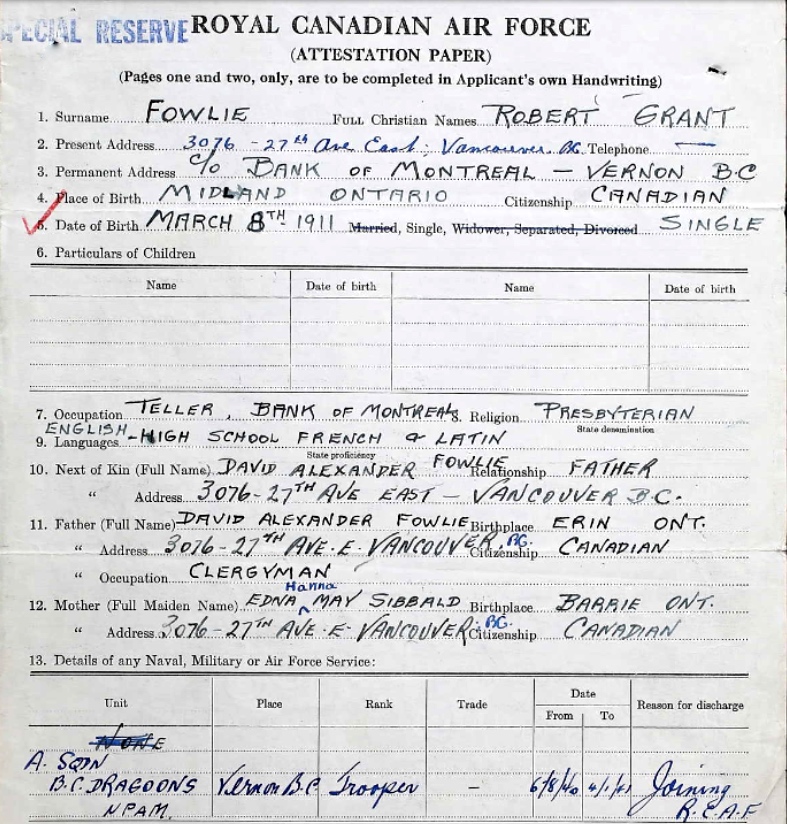 SPECIAL RESERVE ROYAL CANADIAN AIR FORCE
(ATTESTATION PAPER)
(Pages one and two, only, are to be completed in Applicant's own Handwriting)
1. Surname FOWLIE Full Christian Names ROBERT GRANT
2. Present Address 3076 - 27th Ave East; Vancouver. BC. Telephone —
3. Permanent Address c/o BANK OF MONTREAL — VERNON B.C
4. Place of Birth MIDLAND ONTARIO Citizenship CANADIAN
5. Date of Birth MARCH 8TH 1911 Married, Single, Widower, Separated, Divorced SINGLE
6. Particulars of Children
Name Date of birth Name Date of birth
7. Occupation TELLER, BANK OF MONTREAL 8. Religion PRESBYTERIAN
State denomination
ENGLISH
9. Languages -HIGH SCHOOL FRENCH & LATIN
State proficiency
10. Next of Kin (Full Name) DAVID ALEXANDER FOWLIE Relationship FATHER
" Address 3076-27TH AVE EAST - VANCOUVER B.C.
11. Father (Full Name) DAVID ALEXANDER FOWLIE Birthplace ERIN ONT.
" Address 3076-27TH AVE.E. VANCOUVER, BC. Citizenship CANADIAN
" Occupation CLERGYMAN
Hanna
12. Mother (Full Maiden Name) EDNA MAY SIBBALD Birthplace BARRIE ONT.
" Address 3076-27TH AVE.E- VANCOUVER, BC. Citizenship CANADIAN
13. Details of any Naval, Military or Air Force Service:
Unit Place Rank Trade Date Reason for discharge
From To
NONE
A. SQDN
B.C. DRAGOONS Vernon B.C Trooper - 6/8/40 4/1/41 Joining
N.P.A.M. R.C.A.F